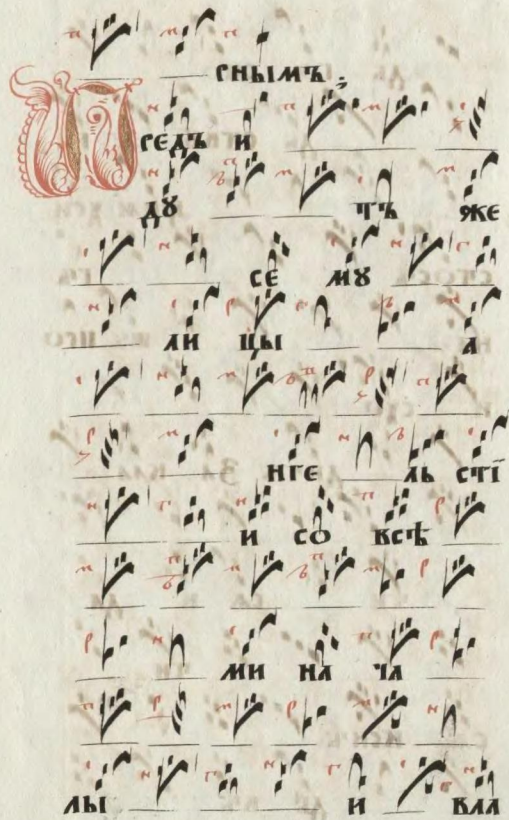 снымъ.
Предъ и
ду тъ же
се му
ли цы а
нге ль стї
и со всѣ
ми на ча
лы и вла